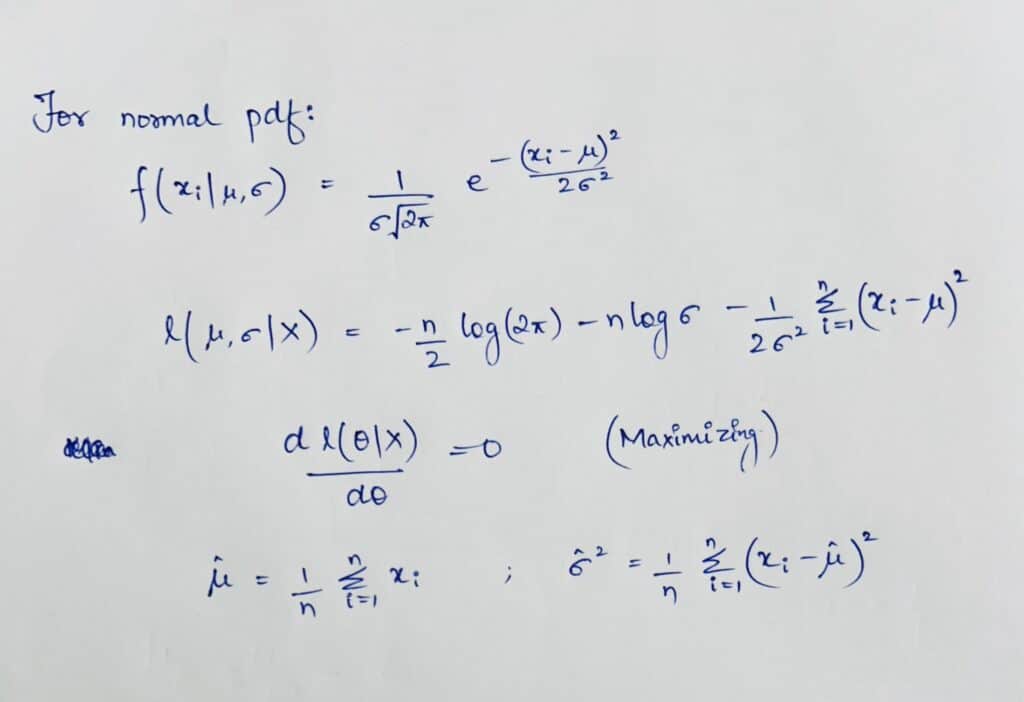 For normal pdf:
f(xi|μ,σ) = 1/(σ√2π) e^(-(xi-μ)²/2σ²)
l(μ,σ|X) = -n/2 log(2π) - n log σ - 1/2σ² Σ_{i=1}^{n} (xi-μ)²
d l(θ|X)/dθ = 0 (Maximizing)
μ̂ = 1/n Σ_{i=1}^{n} xi ; σ̂² = 1/n Σ_{i=1}^{n} (xi-μ̂)²